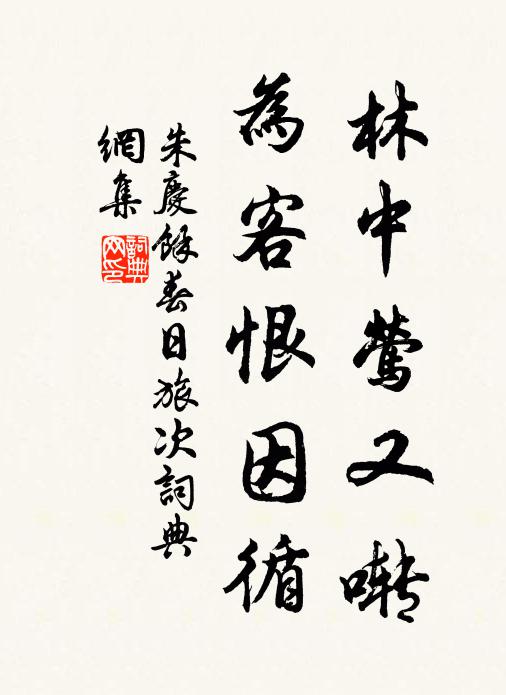 林中鶯又囀
為客恨因循
朱慶餘春日旅次詞典
網集
詞典
网印